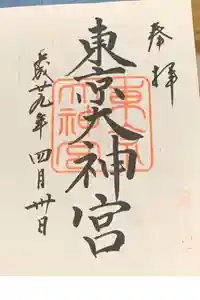 奉拝
東京大神宮
東京
大神宮
平成廿九年四月卅日